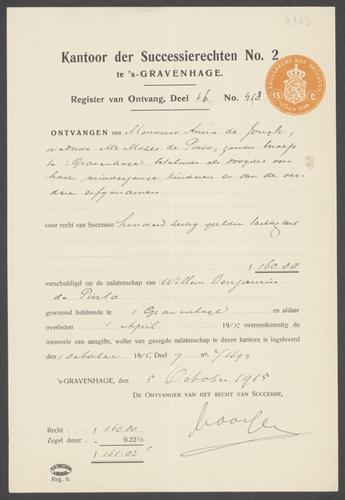 Kantoor der Successierechten No. 2
te 's-GRAVENHAGE.
Register van Ontvang, Deel No. 413
15 C.
ONTVANGEN van Mevrouw Anna de Jongh,
weduwe Mr Mozes de Pinto, zonder beroep
te 's Gravenhage, betalende als voogdes van
hare minderjarige kinderen en van de
drie erfgenamen
voor recht van Successie honderd zestig gulden tachtig cent
verschuldigd op de nalatenschap van Willem Benjamin
de Pinto
gewoond hebbende te 's Gravenhage en aldaar
overleden 1 April 1915 overeenkomstig de
memorie van aangifte, welke van gezegde nalatenschap te dezen kantore is ingeleverd
1 October 1915, Deel 7 no. 2/1694
's-GRAVENHAGE, den 5 October 1915
DE ONTVANGER VAN HET RECHT VAN SUCCESSIE,
Recht . . . ƒ
Zegel dezer . „ 0.22½
ƒ 161.02⁵
Reg. 6.